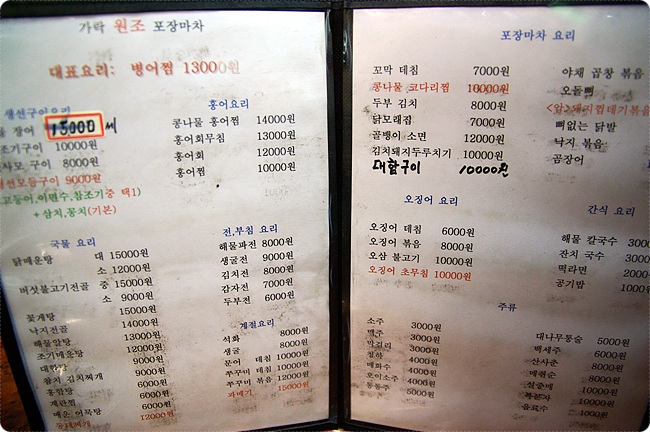 가락 원조 포장마차
대표요리: 병어찜 13000원
생선구이요리
장어 15000
조기구이 10000원
사모 구이 8000원
생선모듬구이 9000원
고등어,이면수,참조기중 택1)
+ 삼치,꽁치(기본)
홍어요리
콩나물 홍어찜 14000원
홍어회무침 13000원
홍어회 12000원
홍어찜 10000원
국물 요리
닭매운탕 대 15000원
소 12000원
버섯불고기전골 중 15000원
소 9000원
꽃게탕 15000원
낙지전골 14000원
해물알탕 13000원
조기매운탕 12000원
9000원
참치 김치찌개 9000원
홍합탕 6000원
계란찜 6000원
매운 어묵탕 6000원
동태찌개 12000원
전,부침 요리
해물파전 8000원
생굴전 9000원
김치전 8000원
감자전 7000원
두부전 6000원
계절요리
석화 8000원
생굴 8000원
문어 데침 10000원
쭈꾸미 데침 10000원
쭈꾸미 볶음 12000원
과메기 15000원
포장마차 요리
꼬막 데침 7000원
콩나물 코다리찜 10000원
두부 김치 8000원
닭모래집 7000원
골뱅이 소면 12000원
김치돼지두루치기 10000원
대합구이 10000원
야채 곱창 볶음
오돌뼈
<암>돼지껍데기볶음
뼈없는 닭발
낙지 볶음
곰장어
오징어 요리
오징어 데침 6000원
오징어 볶음 8000원
오삼 불고기 10000원
오징어 초무침 10000원
간식 요리
해물 칼국수 3000
잔치 국수 3000
떡라면 2000
공기밥 1000
주류
소주 3000원
맥주 3000원
막걸리 3000원
청하 4000원
매화수 4000원
오이소주 4000원
동동주 5000원
대나무통술 5000원
백세주 6000원
산사춘 8000원
매취순 8000원
설중매 10000원
복분자 10000원
음료수 1000원